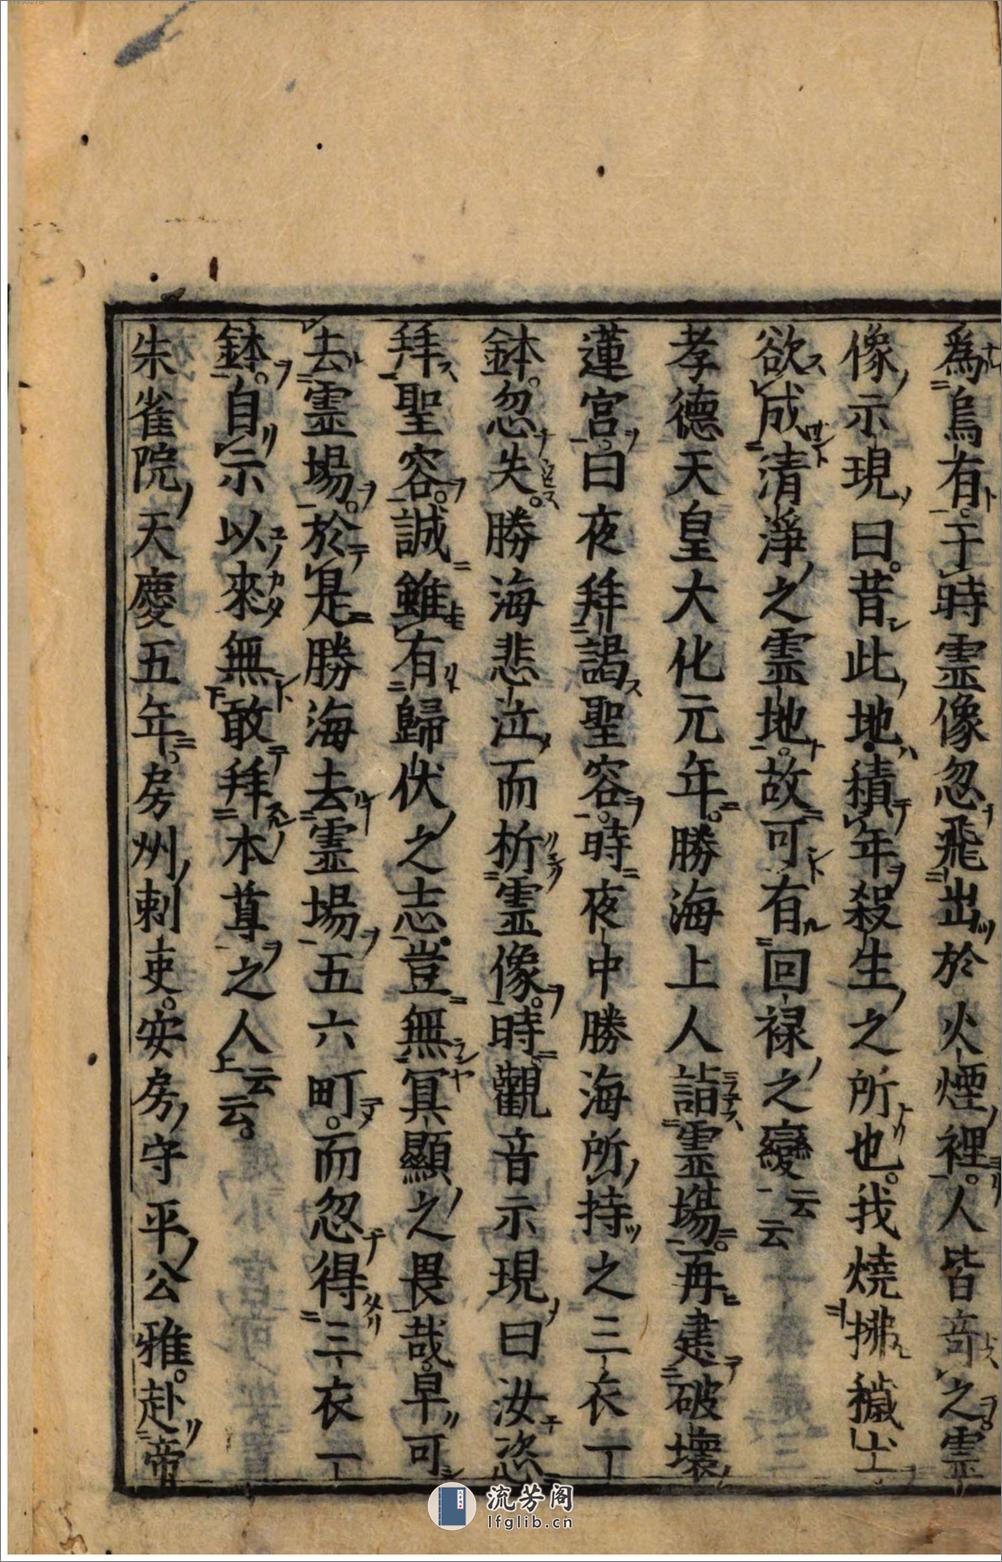 爲烏有于時霊像忽飛出於火煙裡人皆竒之霊
像示現曰昔此地積年殺生之所也我燒拂穢土
欲成清淨之霊地故可有回禄之變云云
孝德天皇大化元年勝海上人詣霊場再建破壞
蓮宮日夜拜謁聖容時夜中勝海所持之三衣一
鉢忽失勝海悲泣而祈霊像時觀音示現曰汝恣
拜聖容誠雖有歸伏之志豈無冥顯之畏哉早可
去霊場於是勝海去霊場五六町而忽得三衣一
鉢自示以來無敢拜本尊之人云云
朱雀院天慶五年房州刺吏安房守平公雅赴帝
流芳阁
lfglib.cn